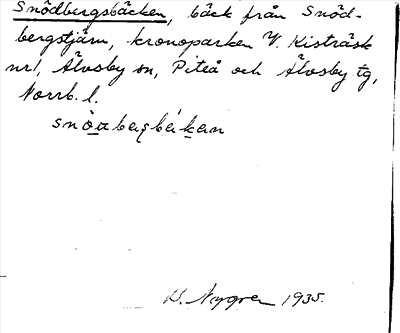 Snödbergsbäcken, bäck från Snöd-
bergstjärn, kronoparken V. Kisträsk
nr1, Älvsby sn, Piteå och Älvsby tg,
Norrb. l.
D. Nygren 1935.